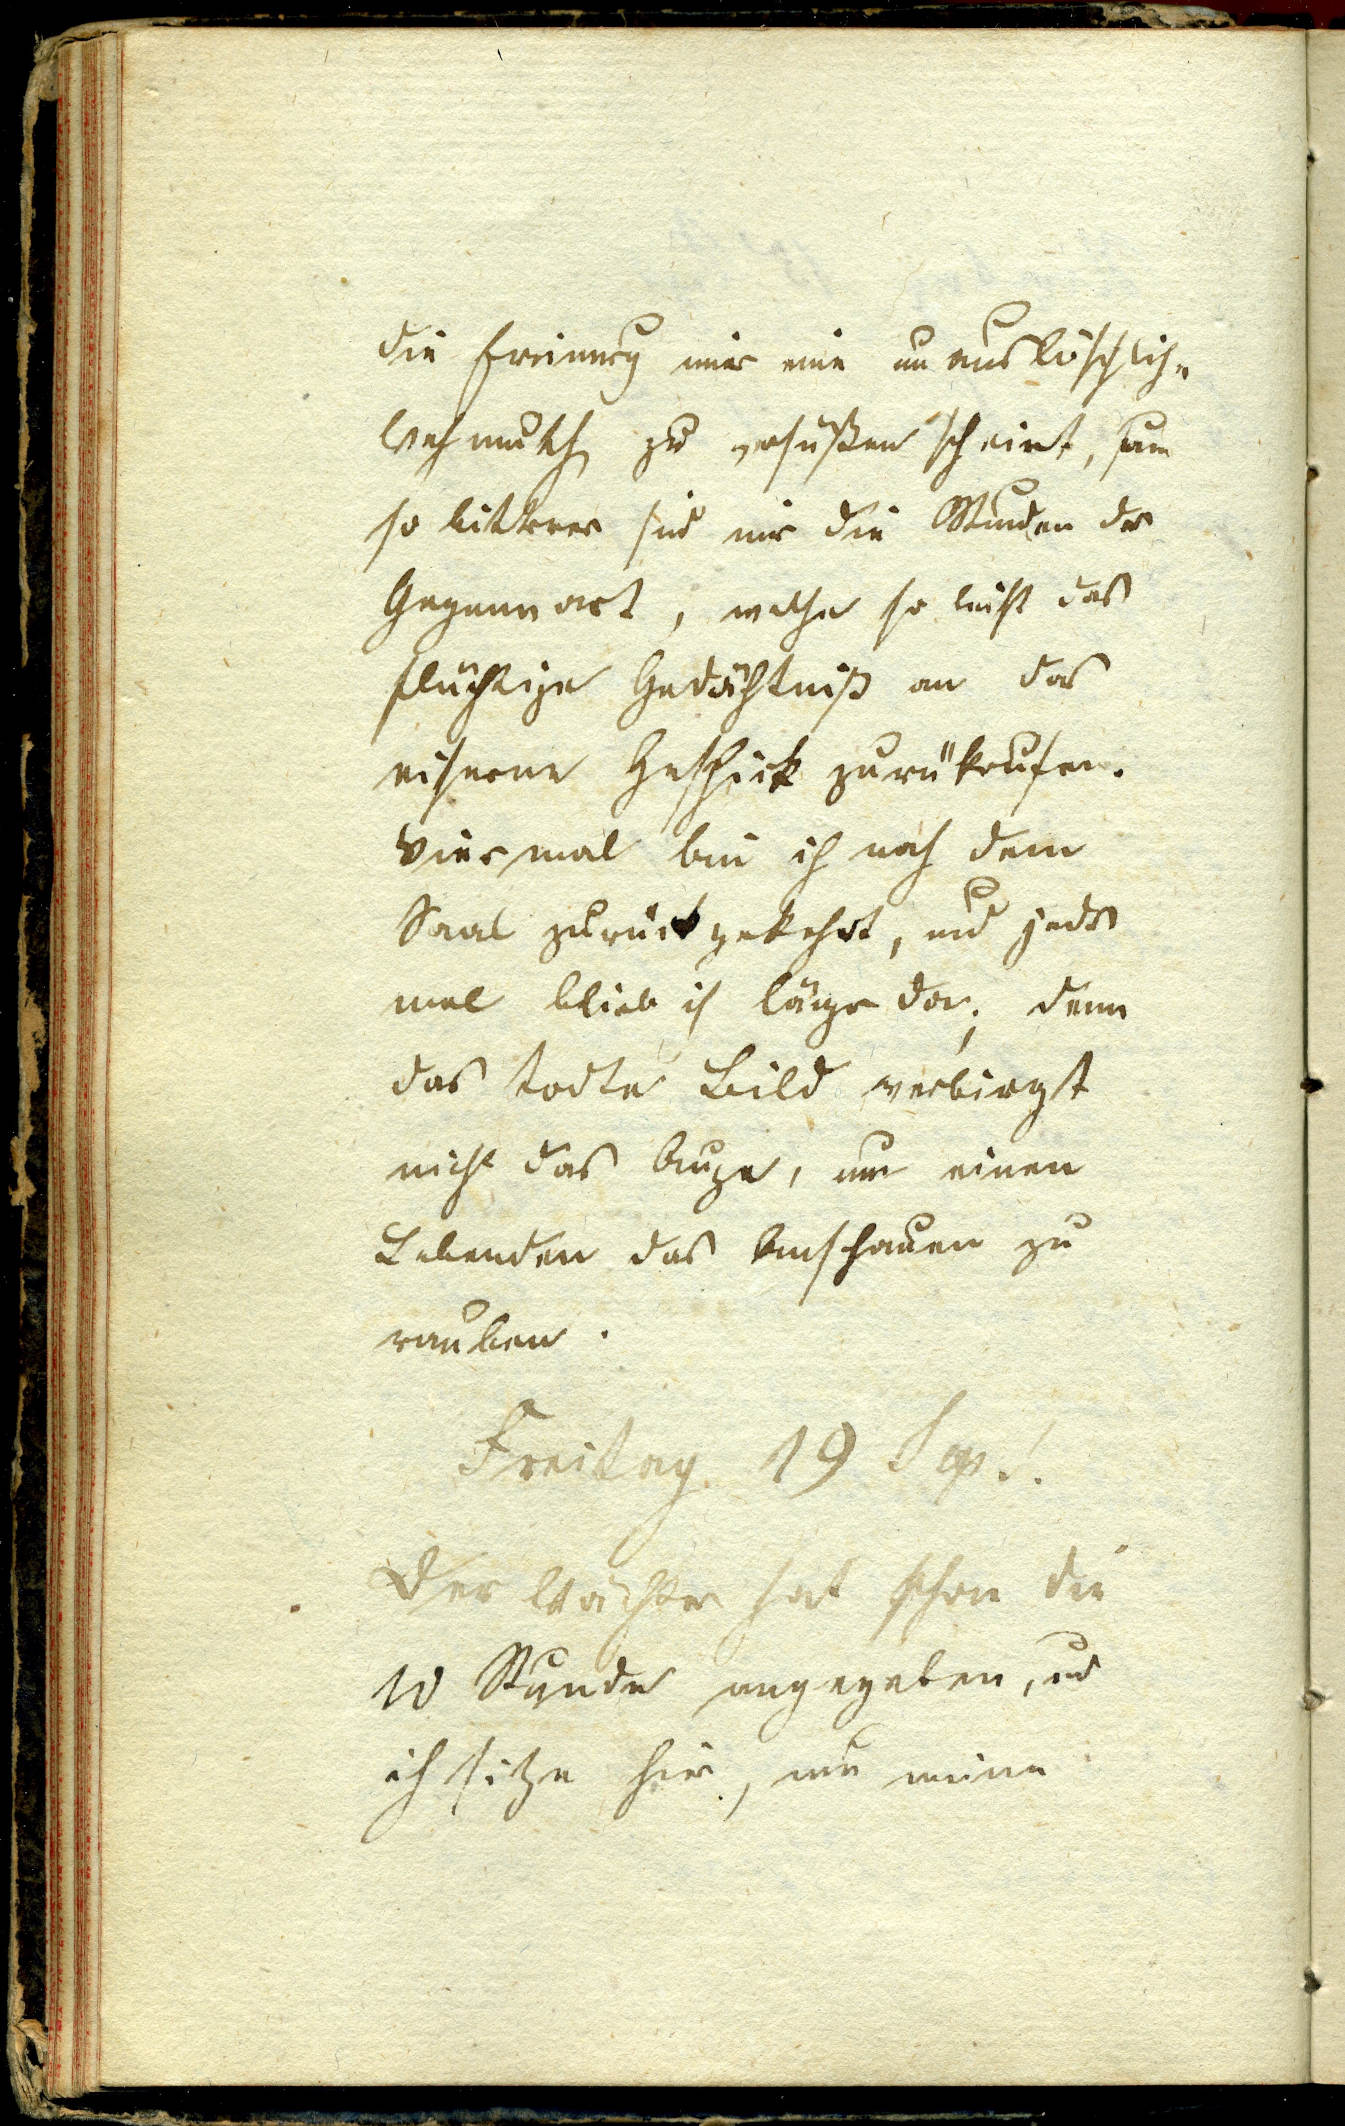 die Erinnerung mir eine unauslöschliche
Wehmuth zu versüßen scheint, um
so bitterer sind mir die Stunden der
Gegenwart, welche so leicht das
flüchtige Gedächtniß an das
eiserne Geschick zurükrufen.
Viermal bin ich nach dem
Saal zurückgekehrt, und jedes
mal blieb ich länger da; denn
das todte Bild verbirgt
nicht das Auge, um einen
Lebenden das Anschauen zu
rauben.
Freitag 19 Sept.
Der Wächter hat schon die
10 Stunde angegeben, und
ich sitze hier, um meine